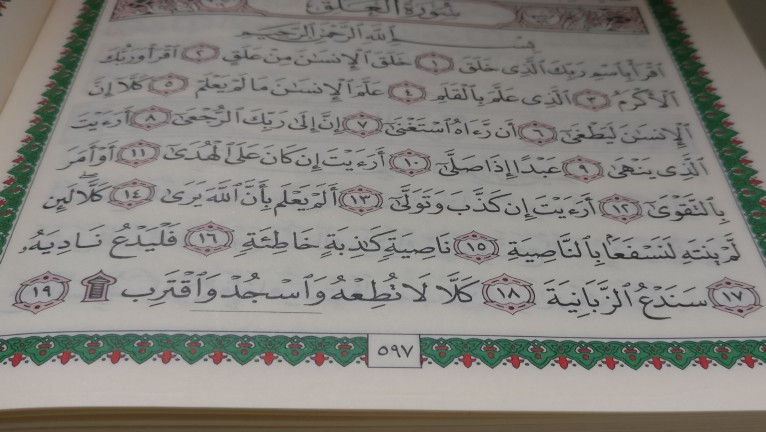 سُورَةُ الْعَلَقِ
بِسْمِ ٱللَّهِ ٱلرَّحْمَٰنِ ٱلرَّحِيمِ
ٱقْرَأْ بِٱسْمِ رَبِّكَ ٱلَّذِى خَلَقَ ١ خَلَقَ ٱلْإِنسَٰنَ مِنْ عَلَقٍ ٢ ٱقْرَأْ وَرَبُّكَ
ٱلْأَكْرَمُ ٣ ٱلَّذِى عَلَّمَ بِٱلْقَلَمِ ٤ عَلَّمَ ٱلْإِنسَٰنَ مَا لَمْ يَعْلَمْ ٥ كَلَّآ إِنَّ
ٱلْإِنسَٰنَ لَيَطْغَىٰٓ ٦ أَن رَّءَاهُ ٱسْتَغْنَىٰٓ ٧ إِنَّ إِلَىٰ رَبِّكَ ٱلرُّجْعَىٰٓ ٨ أَرَءَيْتَ
ٱلَّذِى يَنْهَىٰ ٩ عَبْدًا إِذَا صَلَّىٰٓ ١٠ أَرَءَيْتَ إِن كَانَ عَلَى ٱلْهُدَىٰٓ ١١ أَوْ أَمَرَ
بِٱلتَّقْوَىٰٓ ١٢ أَرَءَيْتَ إِن كَذَّبَ وَتَوَلَّىٰٓ ١٣ أَلَمْ يَعْلَم بِأَنَّ ٱللَّهَ يَرَىٰ ١٤ كَلَّا لَئِن
لَّمْ يَنتَهِ لَنَسْفَعًۢا بِٱلنَّاصِيَةِ ١٥ نَاصِيَةٍ كَٰذِبَةٍ خَاطِئَةٍ ١٦ فَلْيَدْعُ نَادِيَهُۥ
١٧ سَنَدْعُ ٱلزَّبَانِيَةَ ١٨ كَلَّا لَا تُطِعْهُ وَٱسْجُدْ وَٱقْتَرِب ۩ ١٩
٥٩٧